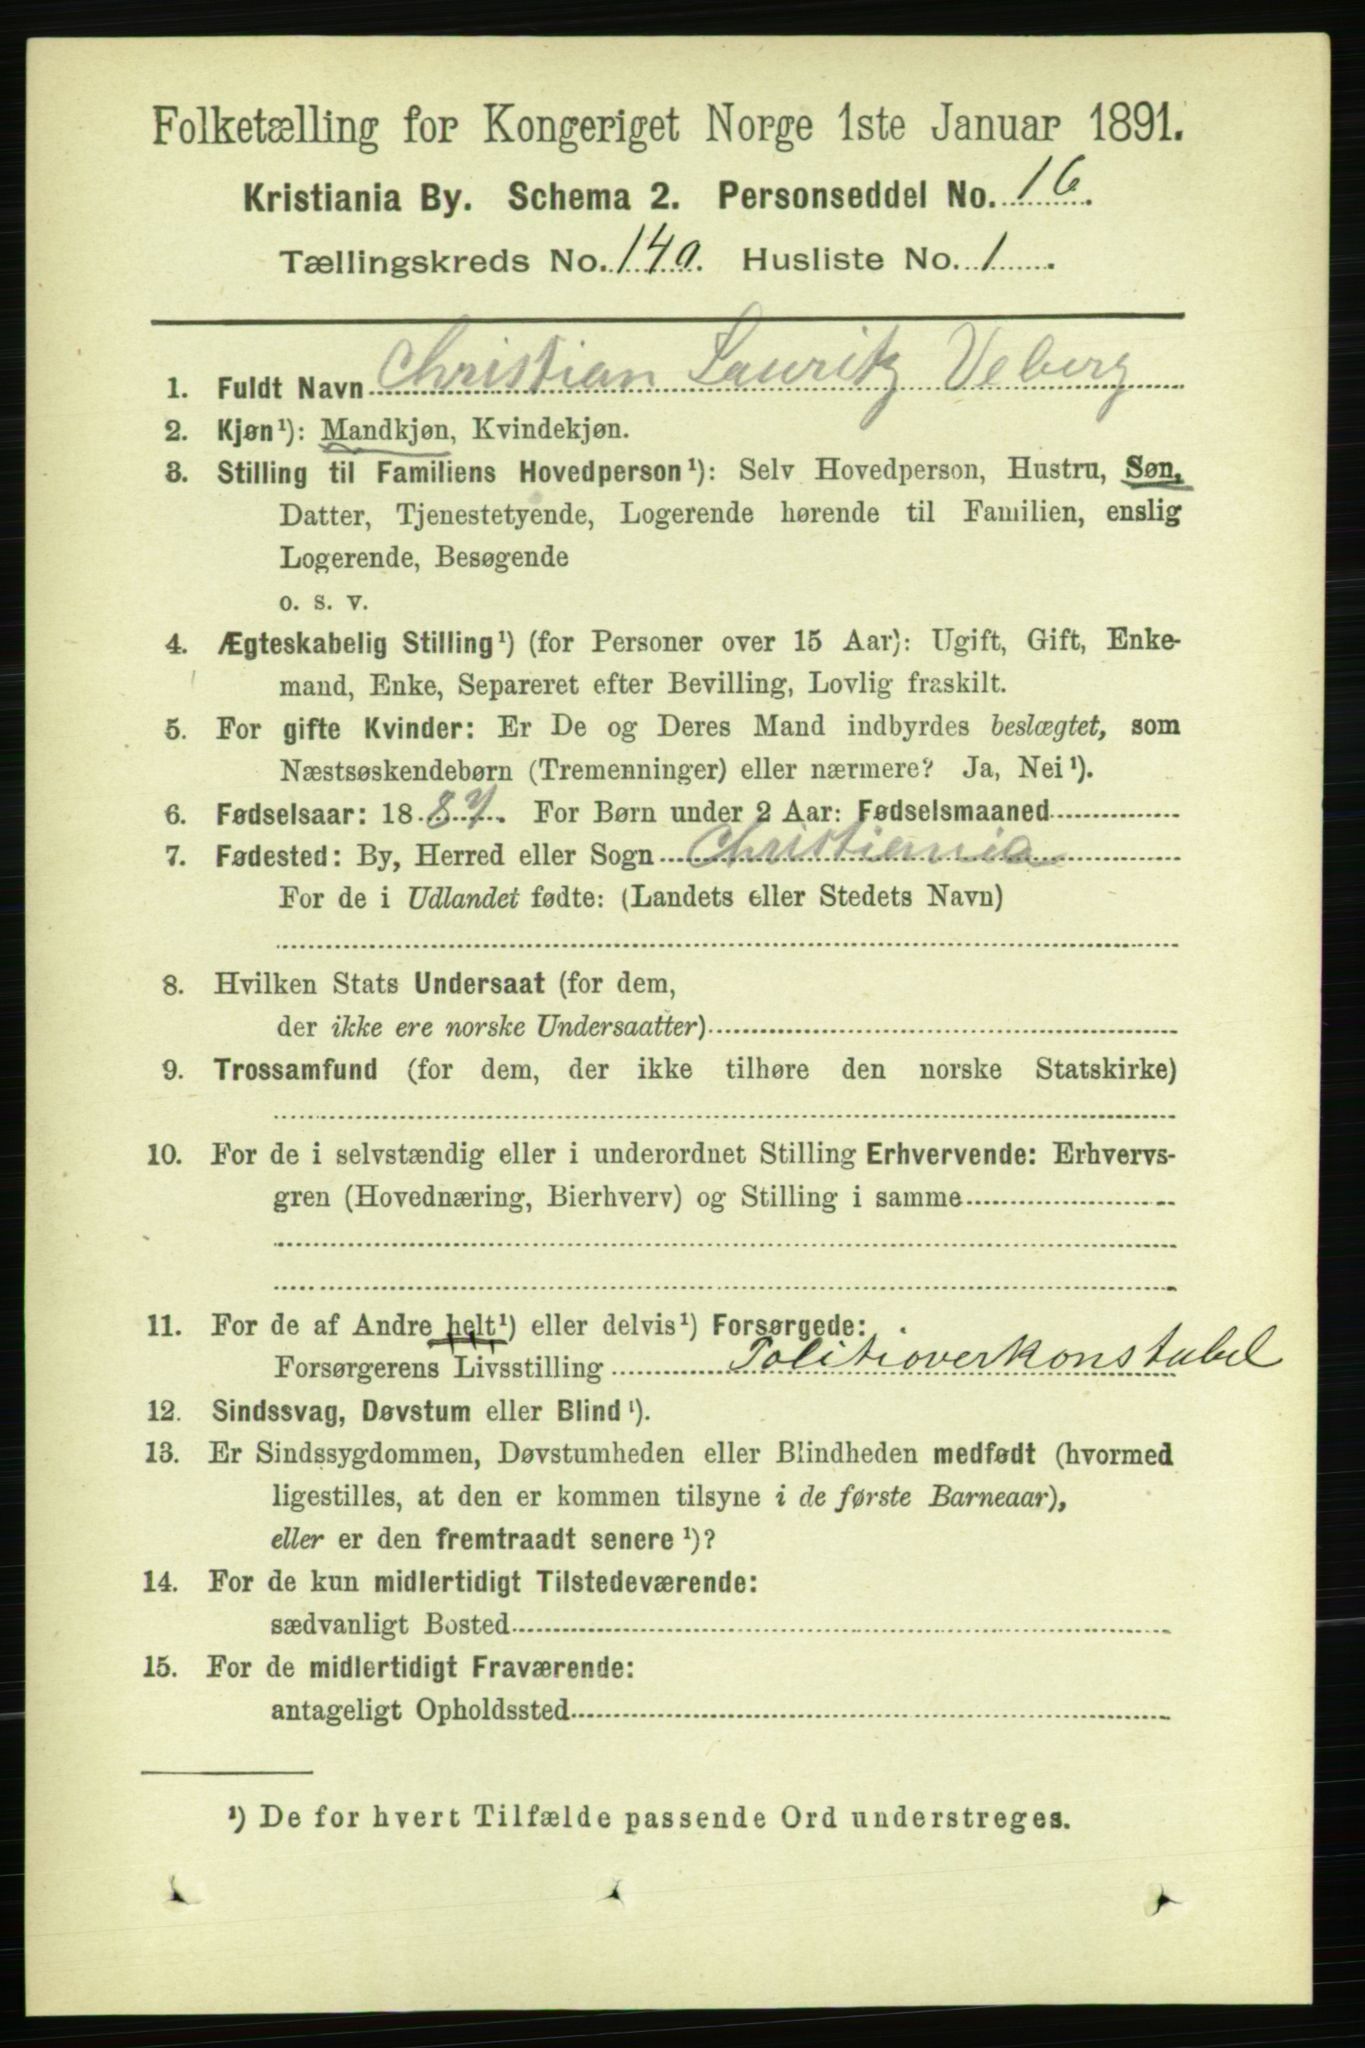 Folketælling for Kongeriget Norge 1ste Januar 1891.
Kristiania By. Schema 2. Personseddel No. 16.
Tællingskreds No. 140. Husliste No. 1.
1. Fuldt Navn Christian Lauritz Veberg
2. Kjøn¹): Mandkjøn, Kvindekjøn.
3. Stilling til Familiens Hovedperson¹): Selv Hovedperson, Hustru, Søn,
Datter, Tjenestetyende, Logerende hørende til Familien, enslig
Logerende, Besøgende
o. s. v.
4. Ægteskabelig Stilling¹) (for Personer over 15 Aar): Ugift, Gift, Enke-
mand, Enke, Separeret efter Bevilling, Lovlig fraskilt.
5. For gifte Kvinder: Er De og Deres Mand indbyrdes beslægtet, som
Næstsøskendebørn (Tremenninger) eller nærmere? Ja, Nei¹).
6. Fødselsaar: 1887. For Børn under 2 Aar: Fødselsmaaned
7. Fødested: By, Herred eller Sogn Christiania
For de i Udlandet fødte: (Landets eller Stedets Navn)
8. Hvilken Stats Undersaat (for dem,
der ikke ere norske Undersaatter)
9. Trossamfund (for dem, der ikke tilhøre den norske Statskirke)
10. For de i selvstændig eller i underordnet Stilling Erhvervende: Erhvervs-
gren (Hovednæring, Bierhverv) og Stilling i samme
11. For de af Andre helt¹) eller delvis¹) Forsørgede:
Forsørgerens Livsstilling Politioverkonstabel
12. Sindssvag, Døvstum eller Blind¹).
13. Er Sindssygdommen, Døvstumheden eller Blindheden medfødt (hvormed
ligestilles, at den er kommen tilsyne i de første Barneaar),
eller er den fremtraadt senere¹)?
14. For de kun midlertidigt Tilstedeværende:
sædvanligt Bosted
15. For de midlertidigt Fraværende:
antageligt Opholdssted
¹) De for hvert Tilfælde passende Ord understreges.